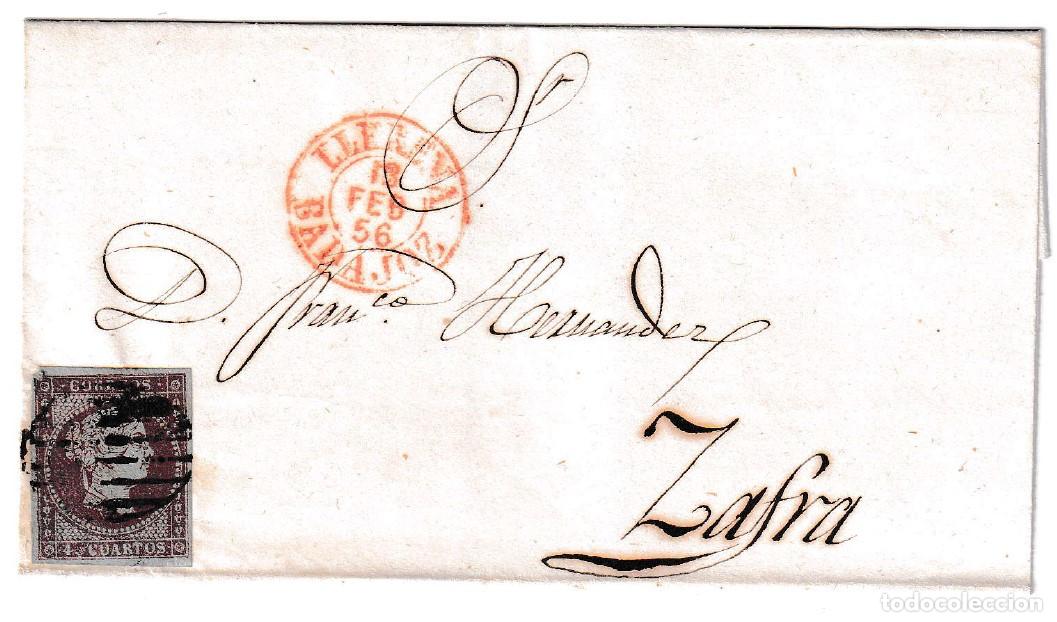 Sr.
LLERENA
FEB
56
BADAJOZ
D. Franco. Hernandez
Zafra
CORREOS
4. CUARTOS
todocoleccion